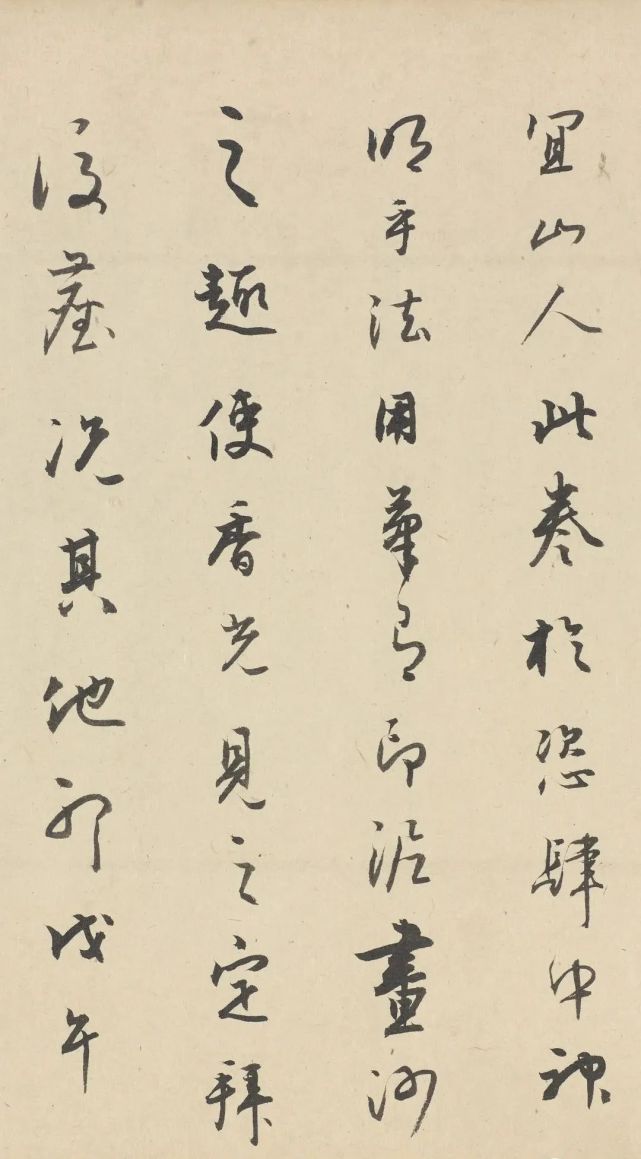 宜山人此卷於恣肆中神
明乎法用筆有印泥畫沙
之趣使香光見之定拜
後塵況其他耶戊午